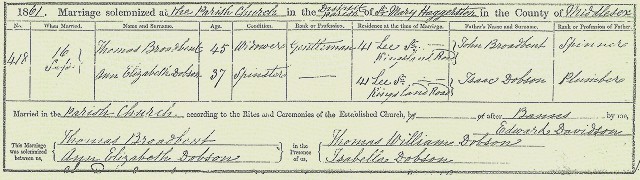 1861. Marriage solemnized at the Parish Church in the District Parish of St Mary Haggerston in the County of Middlesex
No. When Married. Name and Surname. Age. Condition. Rank or Profession. Residence at the time of Marriage. Father's Name and Surname. Rank or Profession of Father.
418 16 Sept. Thomas Broadbent 45 Widower Gentleman 41 Lee St. Kingsland Road John Broadbent Spinner
Ann Elizabeth Dobson 37 Spinster — 41 Lee St. Kingsland Road Isaac Dobson Plumber
Married in the Parish Church. according to the Rites and Ceremonies of the Established Church, by or after Banns by me,
Edward Davidson
This Marriage was solemnized between us, Thomas Broadbent Ann Elizabeth Dobson in the Presence of us, Thomas William Dobson Isabella Dobson